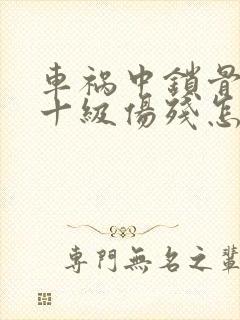 車祸中鎖骨
十級傷殘怎
專門無名之輩